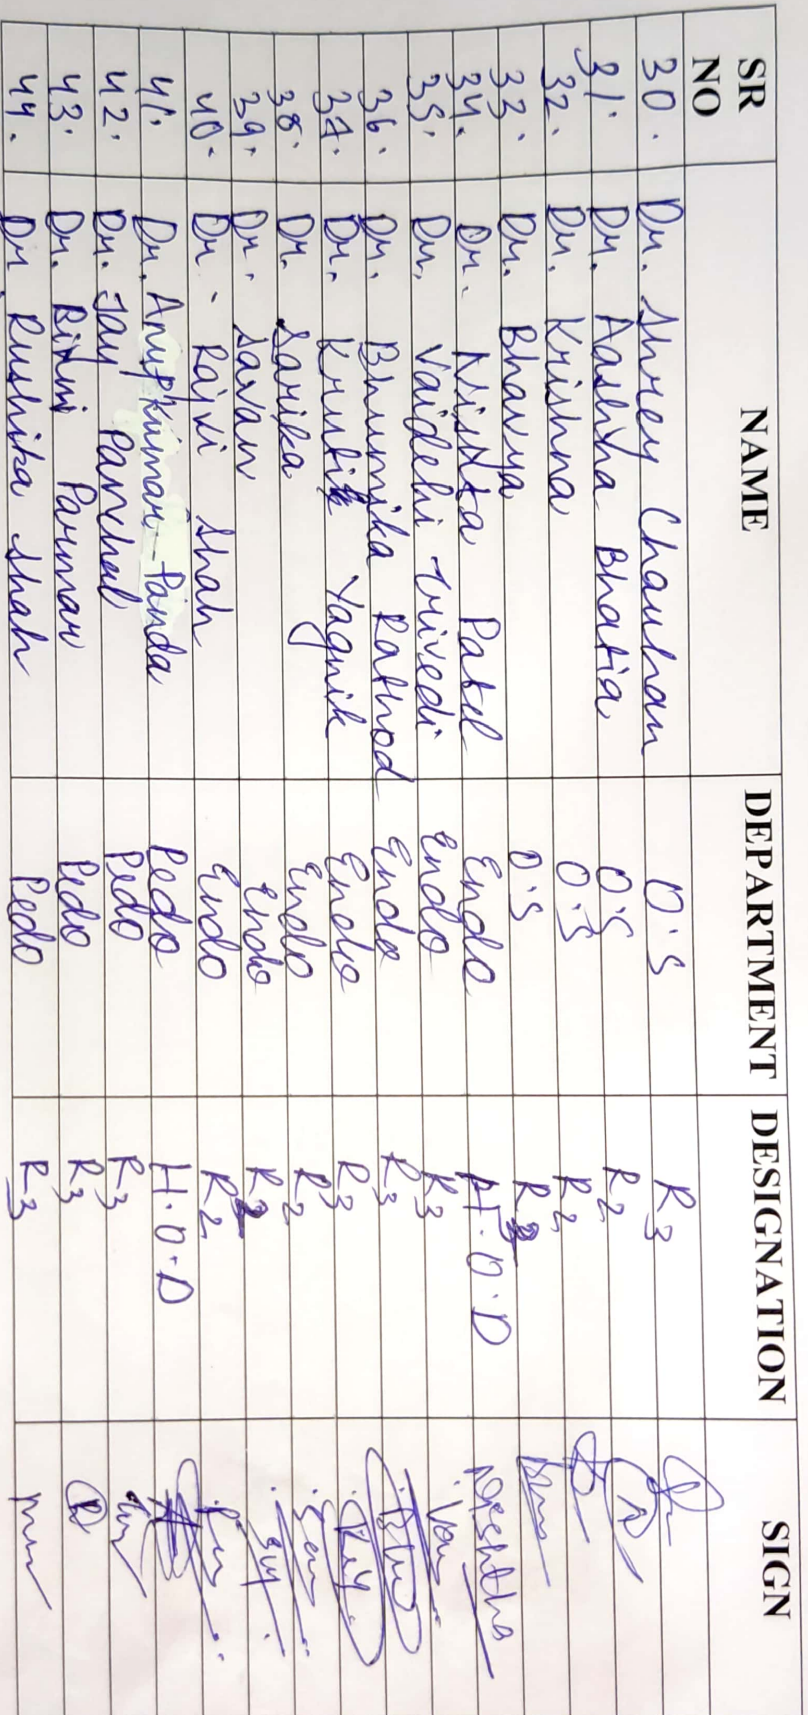 SR NO NAME DEPARTMENT DESIGNATION SIGN
30. Dr. Shrey Chauhan O.S R3
31. Dr. Aashna Bhatia O.S R2
32. Dr. Krishna O.S R2
33. Dr. Bhavya O.S
34. Dr. Nishtha Patel Endo H.O.D Nishtha
35. Dr. Vaidehi Trivedi Endo R3
36. Dr. Bhumika Rathod Endo R3
37. Dr. Krutik Yagnik Endo R3
38. Dr. Sarika Endo R2
39. Dr. Savan Endo R2
40. Dr. Rajvi Shah Endo R2
41. Dr. Anupkumar Panda Pedo H.O.D
42. Dr. Jay Panchal Pedo R3
43. Dr. Parmar Pedo R3
44. Dr. Rushika Shah Pedo R3